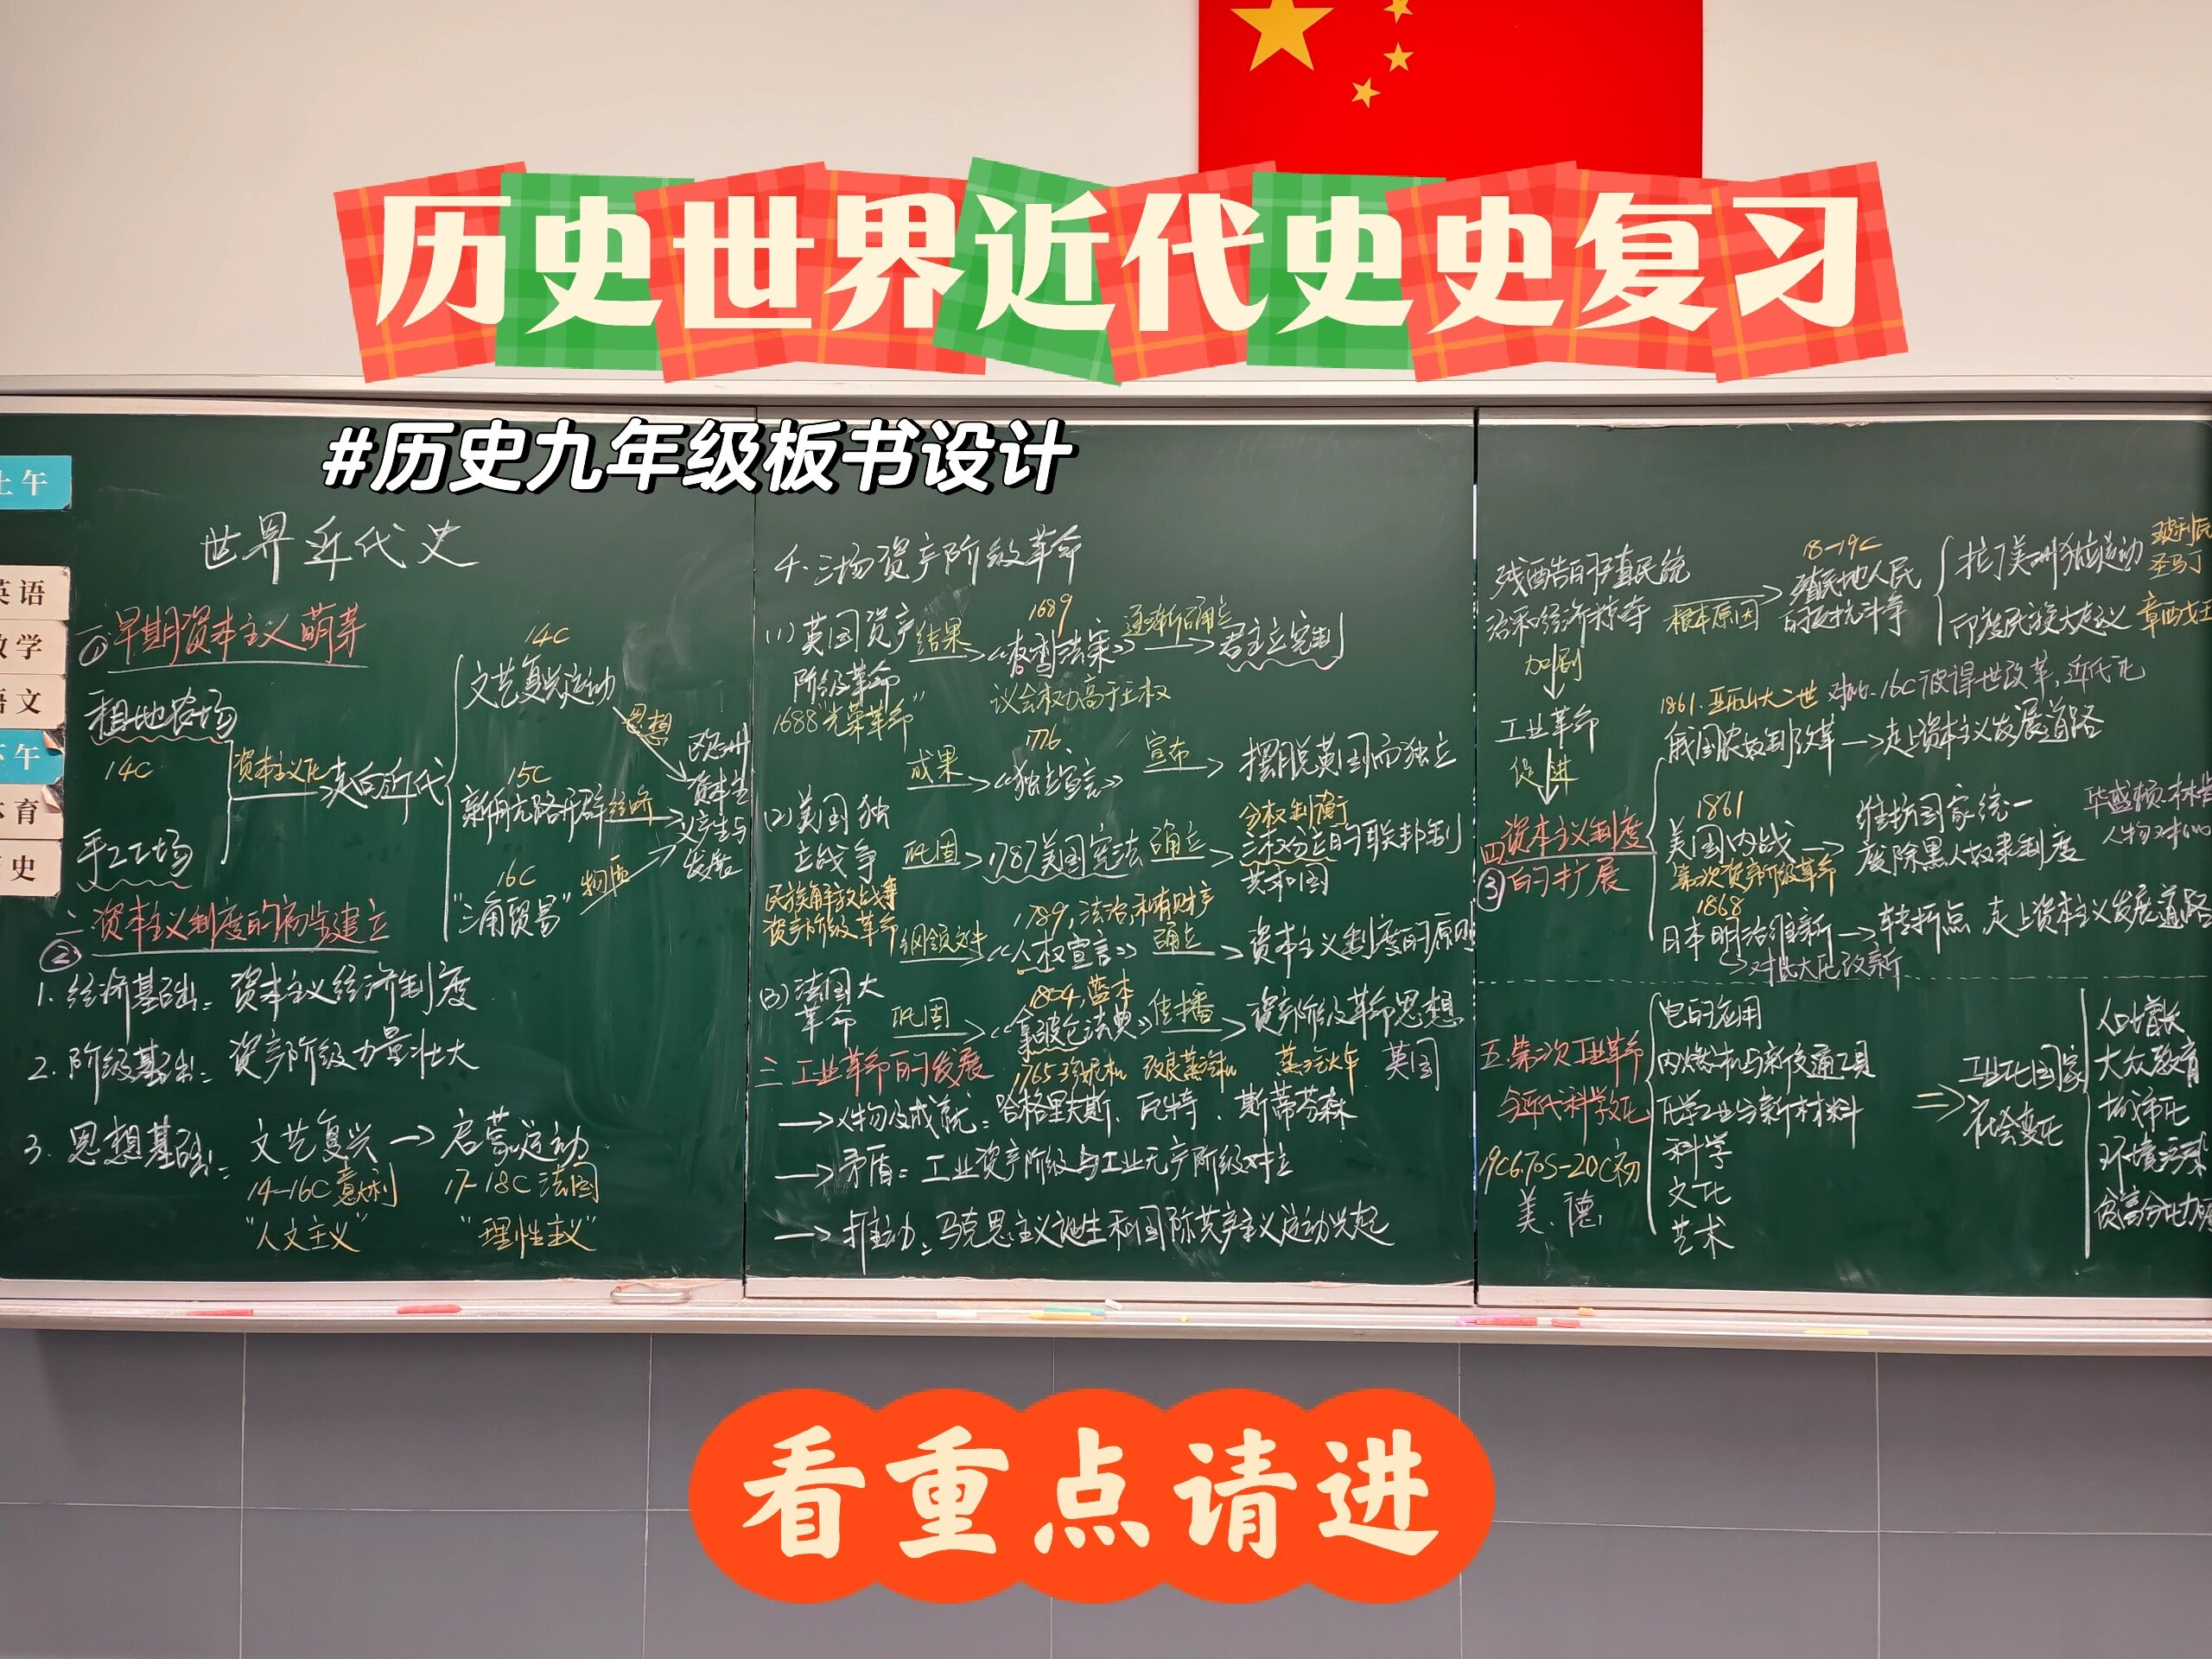 历史世界近代史史复习
#历史九年级板书设计
上午
英语
数学
语文
下午
体育
历史
世界近代史
一、早期资本主义萌芽
①
租地农场
14C
手工工场
资本主义化
走向近代
14C
文艺复兴运动
思想
15C
新航路开辟
经济
16C
"三角贸易"
物质
欧洲
资本主
义产生与
发展
二、资本主义制度的初步建立
②
1. 经济基础: 资本主义经济制度
2. 阶级基础: 资产阶级力量壮大
3. 思想基础: 文艺复兴 → 启蒙运动
14-16C 意大利 17-18C 法国
"人文主义" "理性主义"
4. 三场资产阶级革命
(1) 英国资产
阶级革命
1688"光荣革命"
结果
1689
《权利法案》
议会权力高于王权
逐渐确立
君主立宪制
成果
1776
《独立宣言》
宣布
摆脱英国而独立
(2) 美国独
立战争
民族解放战争
资产阶级革命
巩固
1787美国宪法
确立
分权制衡
三权分立的联邦制
共和国
纲领文件
1789,法治,私有财产
《人权宣言》
确立
资本主义制度的原则
(3) 法国大
革命
巩固
1804,蓝本
《拿破仑法典》
传播
资产阶级革命思想
三 工业革命的发展
1765珍妮机 改良蒸汽机 蒸汽火车 英国
→ 人物及成就: 哈格里夫斯、瓦特、斯蒂芬森
→ 矛盾: 工业资产阶级与工业无产阶级对立
→ 推动: 马克思主义诞生和国际共产主义运动兴起
残酷的殖民统
治和经济掠夺
根本原因
18-19C
殖民地人民
的反抗斗争
拉丁美洲独立运动
玻利瓦
圣马丁
印度民族大起义
章西女王
加剧
工业革命
促进
四 资本主义制度
③ 的扩展
1861.亚历山大二世 对比.16C彼得世改革,近代化
俄国农奴制改革 → 走上资本主义发展道路
1861
美国内战 →
第二次资产阶级革命
维护国家统一
废除黑人奴隶制度
华盛顿.林肯
人物对比
1868
日本明治维新 → 转折点 走上资本主义发展道路
对比大化改新
五.第二次工业革命
与近代科学文化
19C6.70S-20C初
美、德
电的应用
内燃机与新交通工具
化学工业与新材料
科学
文化
艺术
⇒
工业化国家
社会变化
人口增长
大众教育
城市化
环境污染
贫富分化
看重点请进